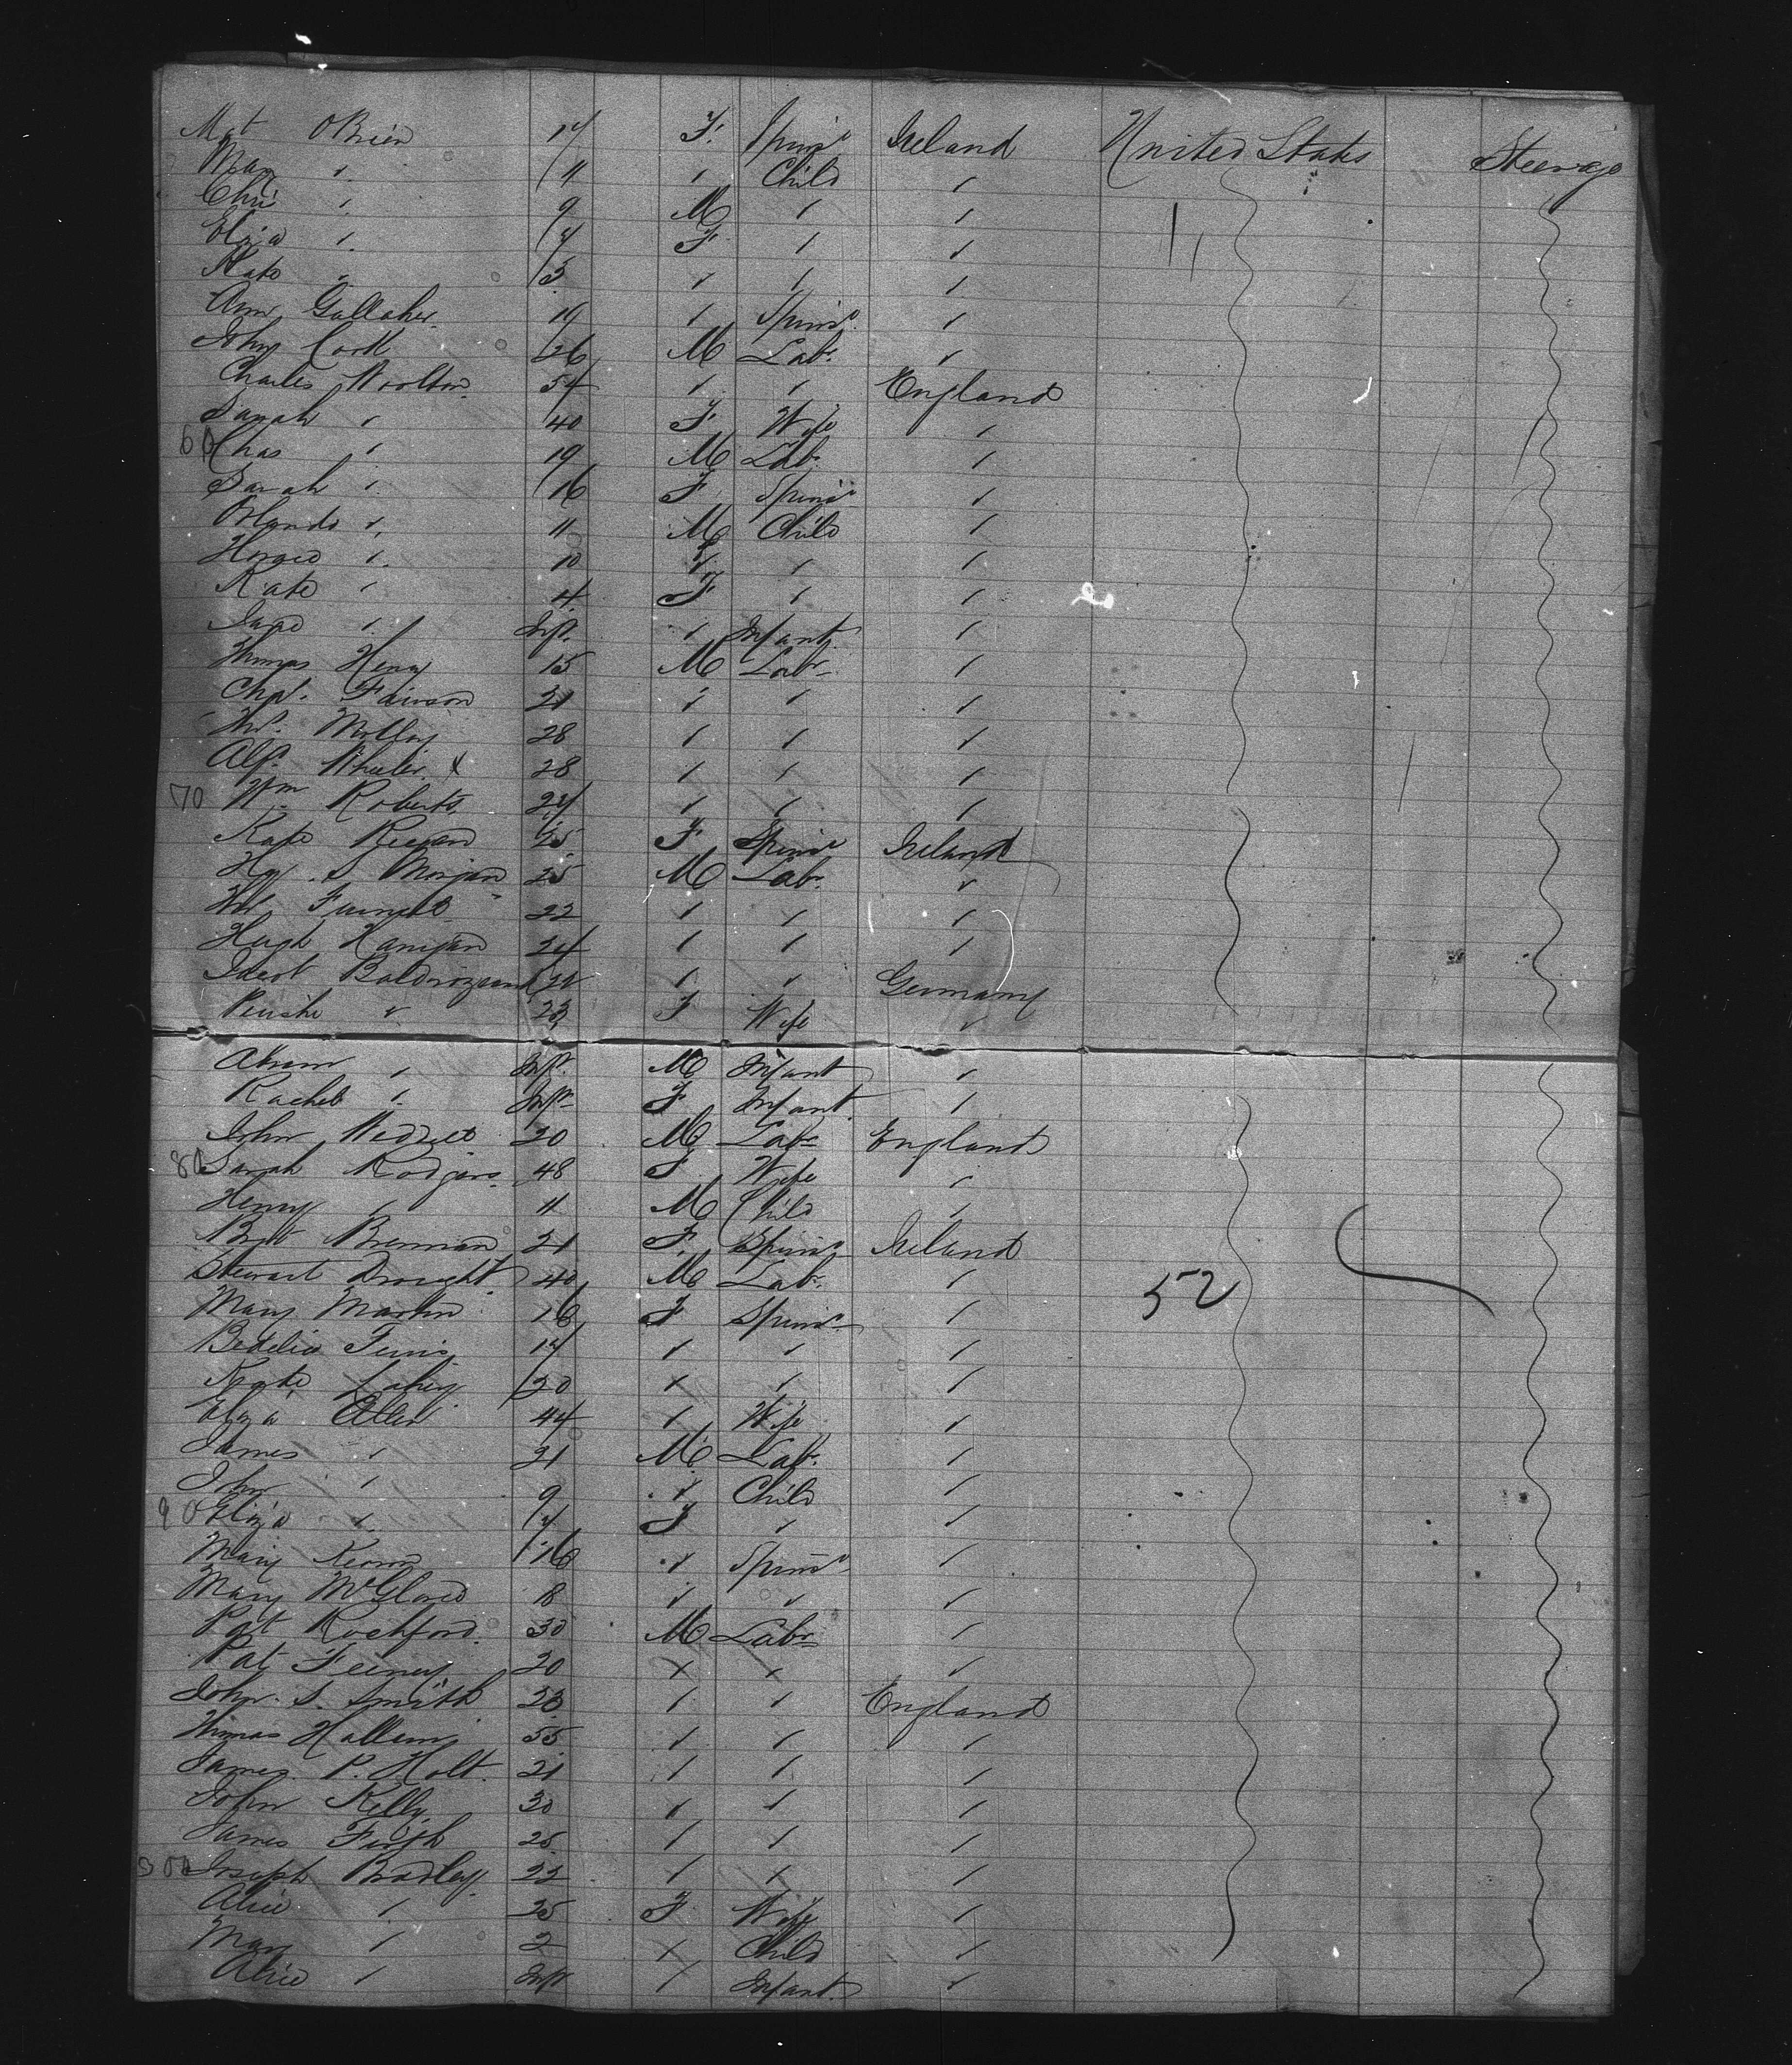 Mgt OBrien 17 F. Spinr Ireland United States Steerage
Mary " 11 " Child "
Chri " 9 M " "
Eliza " 7 F " "
Kate " 3 " " "
Ann Gallaher 19 " Spinr "
John Cork 26 M Labr "
Charles Woolton 54 " " England
Sarah " 40 F Wife "
60 Chas " 19 M Labr "
Sarah " 16 F Spinr "
Orlando " 11 M Child "
Horace " 10 " " "
Kate " 4 F " "
Jane " Inft. " Infant "
Thomas Henry 15 M Labr "
Chpr. Fairson 21 " " "
Wm. Molloy 28 " " "
Alfd. Wheeler x 28 " " "
70 Wm Roberts 24 " " "
Kate Regan 25 F Spinr Ireland
Hy. S. Morgan 25 M Labr "
Wm 22 " " "
Hugh Hanigan 24 " " "
22 " " Germany
" 23 F Wife "
Abram " Inft. M Infant "
Rachel " Inft. F Infant "
John 20 M Labr England
80 Sarah Rodgers 48 F Wife "
Henry " 11 M Child "
Bgt Brennan 21 F Spinr Ireland
Stewart Drought 40 M Labr "
52
Mary Martin 16 F Spinr "
Bedelia 17 " " "
Kate Lahey 20 " " "
Eliza Allen 44 " Wife "
James " 21 M Labr "
John " 9 " Child "
90 Eliza " 7 F " "
Mary Keown 16 " Spinr "
Mary McGlored 18 " " "
Pat Rochford 30 M Labr "
Pat Feeney 20 " " "
John S. Smith 23 " " England
Thomas Hallam 55 " " "
James P. Holt 21 " " "
John Kelly 30 " " "
James Firth 25 " " "
300 Joseph Bradley 22 " " "
Alice " 25 F Wife "
Mary " 2 " Child "
Alice " Inft " Infant "